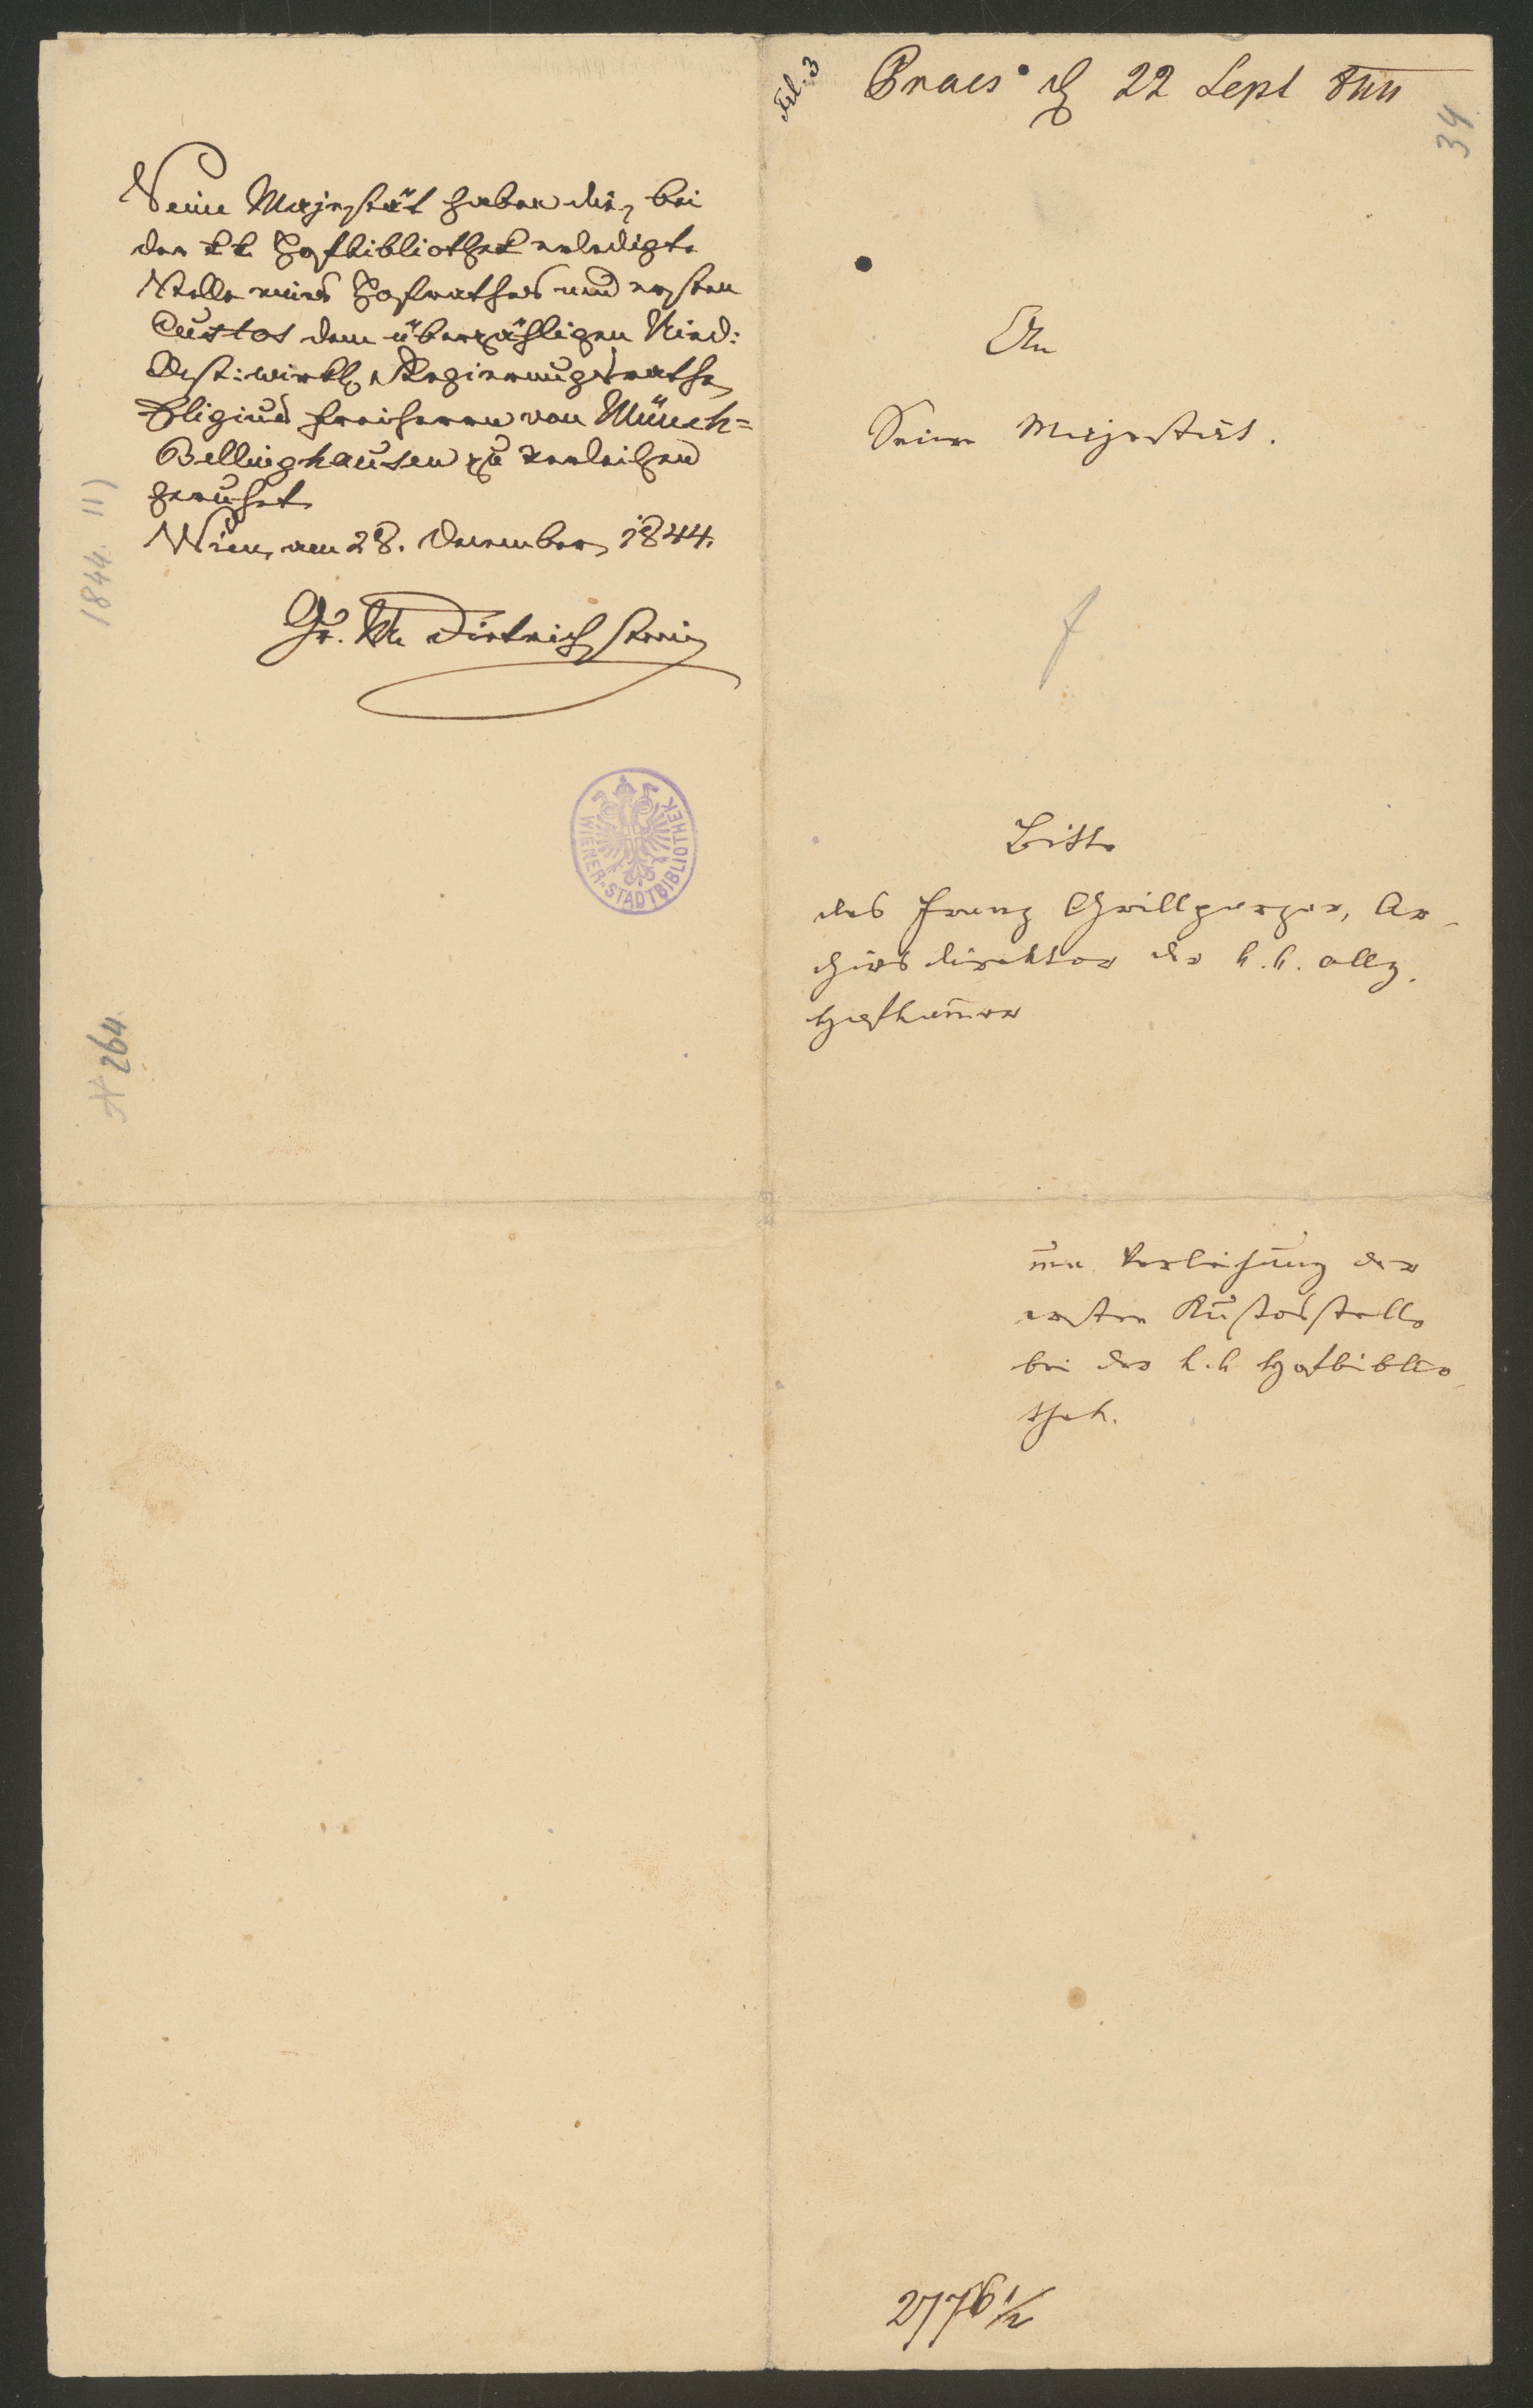 Seine Majestät haben die, bei
der k.k. Hofbibliothek erledigte
Stelle eines Hofrathes und ersten
Custos dem überzähligen Nied:
Oest: wirkl. Regierungsrathe
Eligius Freiherrn von Münch=
Bellinghausen zu verleihen
geruhet.
Wien, am 28. Dezember 1844.
Gr. M Dietrichstein
WIENER-STADTBIBLIOTHEK
1844. 11)
N 264.
3
Praes 22 Sept 844
34.
An
Seine Majestät.
Bitte
des Franz Grillparzer, Ar-
chivsdirektor der k.k. allg.
Hofkammer
um Verleihung der
ersten Kustosstelle
bei der k.k. Hofbiblio-
thek.
2776 1/2